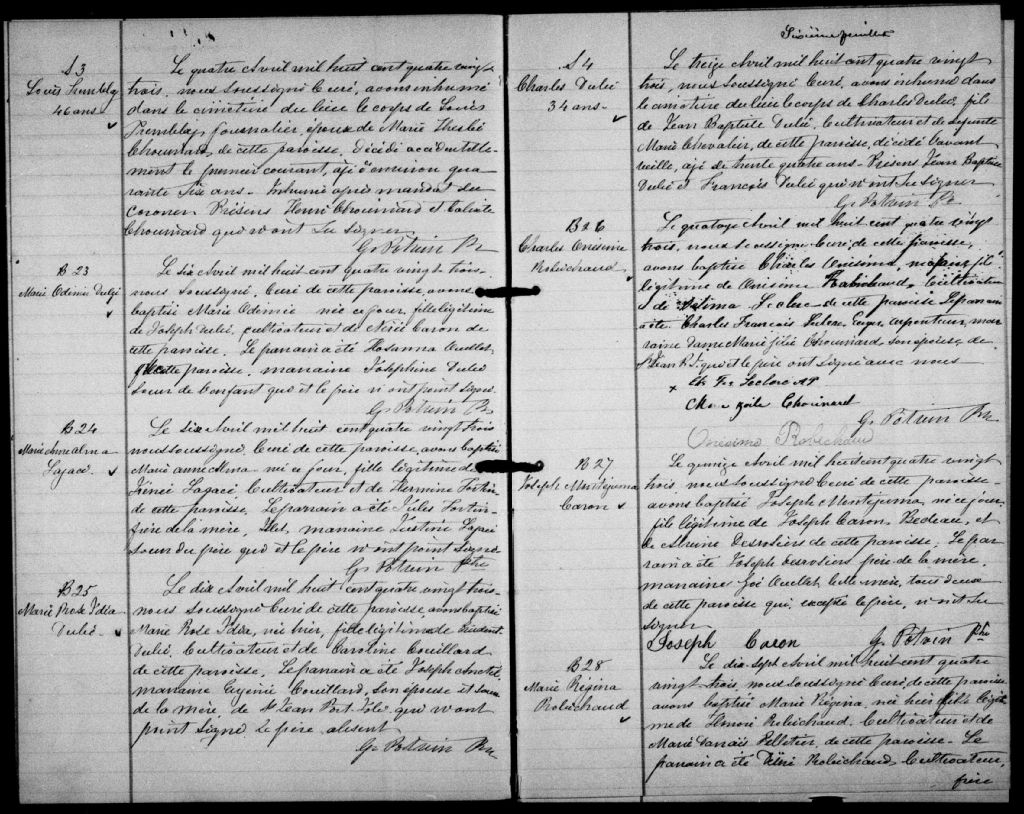 S3
Louis Tremblay
46 ans
Le quatre Avril mil huit cent quatre vingt
trois, nous soussigné Curé, avons inhumé
dans le cimetière du lieu le corps de Louis
Tremblay, journalier, époux de Marie
Chouinard, de cette paroisse, décédé accidentelle-
ment le premier courant, agé d'environ qua
rante six ans - Inhumé après mandat du
Coroner Présens Henri Chouinard et
Chouinard qui n'ont su signer
G. Potvin Ptr
B 23
Marie Odemie Dubé
Le six Avril mil huit cent quatre vingt trois
nous soussigné, Curé de cette paroisse, avons
baptisé Marie Odemie née ce jour, fille légitime
de Joseph Dubé, cultivateur et de Caron de
cette paroisse. Le parrain a été Hosanna Ouellet
de cette paroisse, marraine Joséphine Dubé
soeur de l'enfant qui et le père n'ont point signé.
G. Potvin Ptr
B 24
Marie Anne Alma
Lagacé
Le six Avril mil huit cent quatre vingt trois
nous soussigné, Curé de cette paroisse, avons baptisé
Marie Anne Alma née ce jour, fille légitime de
Irénée Lagacé Cultivateur et de Hermine Fortin
de cette paroisse, Le parrain a été Jules Fortin
frère de la mère, marraine Justine Lagacé
soeur du père qui et le père n'ont point signé
G. Potvin Ptre
B 25
Marie Rose Idéa
Dubé
Le dix Avril mil huit cent quatre vingt trois
nous soussigné Curé de cette paroisse, avons baptisé
Marie Rose Idéa, née hier, fille légitime de
Dubé, Cultivateur et de Caroline Couillard
de cette paroisse. Le parrain a été Joseph Anctil,
marraine Eugénie Couillard, son épouse et soeur
de la mère, de St Jean Port Joli qui n'ont
point signé Le père absent
G. Potvin Ptr
Sixième feuillet
S4
Charles Dubé
34 ans
Le treize Avril mil huit cent quatre vingt
trois, nous soussigné Curé, avons inhumé dans
le cimetière du lieu le corps de Charles Dubé, fils
de Jean Baptiste Dubé, Cultivateur et de défunte
Marie Chevalier, de cette paroisse, décédé l'avant
veille, agé de trente quatre ans - Présens Jean Baptiste
Dubé et François Dubé qui n'ont su signer
G. Potvin Ptr
B 26
Charles Onésime
Robichaud
Le quatorze Avril mil huit cent quatre vingt
trois, nous soussigné Curé, de cette paroisse,
avons baptisé Charles Onésime, né fils
légitime de Onésime Robichaud, Cultivateur
et de Leclerc de cette paroisse Le parrain
a été Charles François Leclerc Ecuyer Arpenteur, mar
raine Dame Marie Zoé Chouinard son épouse, de
St Jean P. J. qui et le père ont signé avec nous
x Ch Fs Leclerc AP
Marie Zoile Chouinard
G. Potvin Ptr
Onésime Robichaud
B 27
Joseph Montézuma
Caron
Le quinze Avril mil huit cent quatre vingt
trois nous soussigné Curé de cette paroisse
avons baptisé Joseph Montézuma, né ce jour
fils légitime de Joseph Caron Bedeau, et
de Desrosiers de cette paroisse, Le par
rain a été Joseph Desrosiers frère de la mère,
marraine Zoé Ouellet mère, tous deux
de cette paroisse qui, excepté le père, n'ont su
signer
Joseph Caron G. Potvin Ptre
B 28
Marie Régina
Robichaud
Le dix-sept Avril mil huit cent quatre
vingt trois, nous soussigné Curé, de cette paroisse
avons baptisé Marie Régina, née hier fille légiti
me de Robichaud, Cultivateur et de
Marie Pelletier, de cette paroisse - Le
parrain a été Robichaud, Cultivateur,
frère